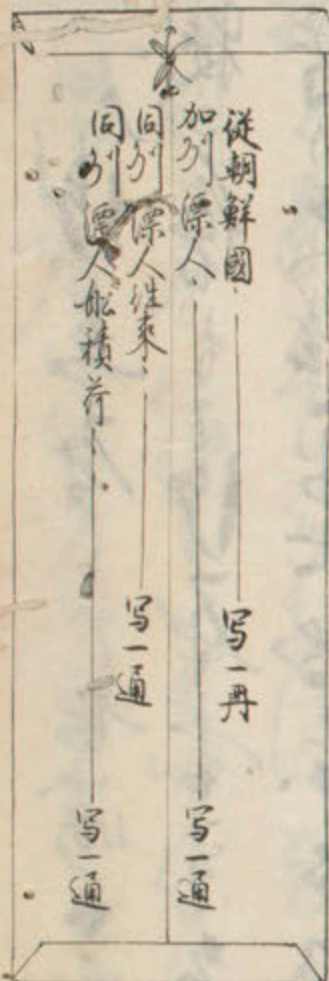 從朝鮮國 写一冊
加刕漂人 写一通
同刕漂人往来 写一通
同刕漂人舩積荷 写一通